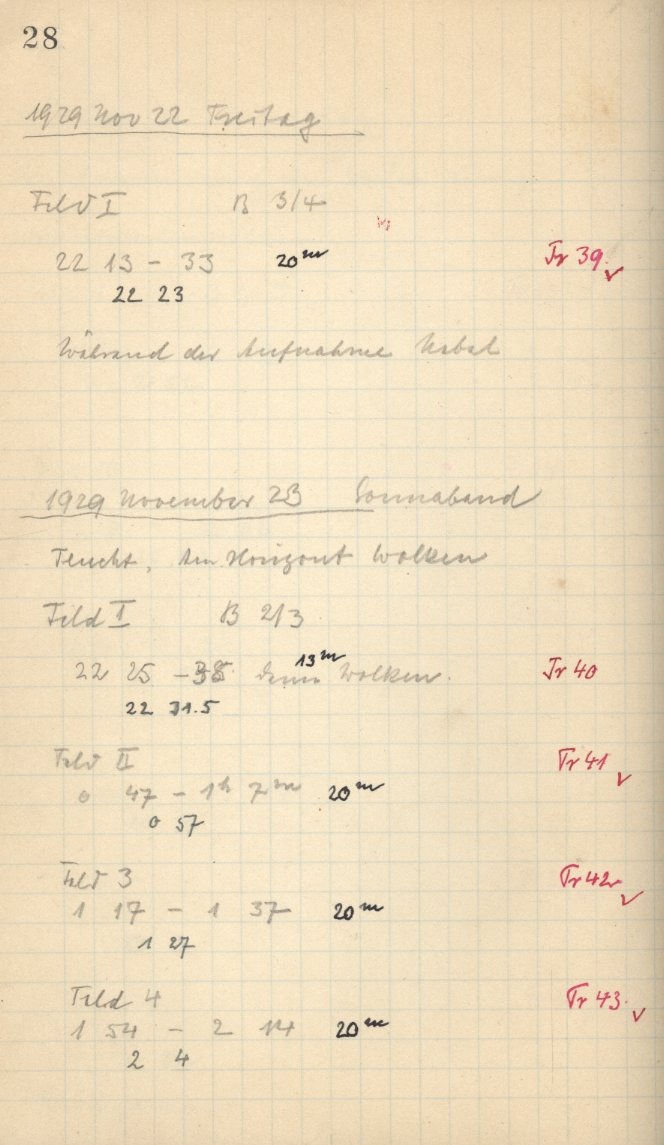 28
1929 Nov 22 Freitag
Feld I B 3/4
22 13 - 33 20m Tr 39 ✓
22 23
Während der Aufnahme Nebel
1929 November 23 Sonnabend
Feucht, Am Horizont Wolken
Feld I B 2/3
13m
22 25 - 38 dann Wolken. Tr 40
22 31.5
Feld II Tr 41 ✓
0 47 - 1h 7m 20m
0 57
Feld 3 Tr 42 ✓
1 17 - 1 37 20m
1 27
Feld 4 Tr 43 ✓
1 54 - 2 14 20m
2 4